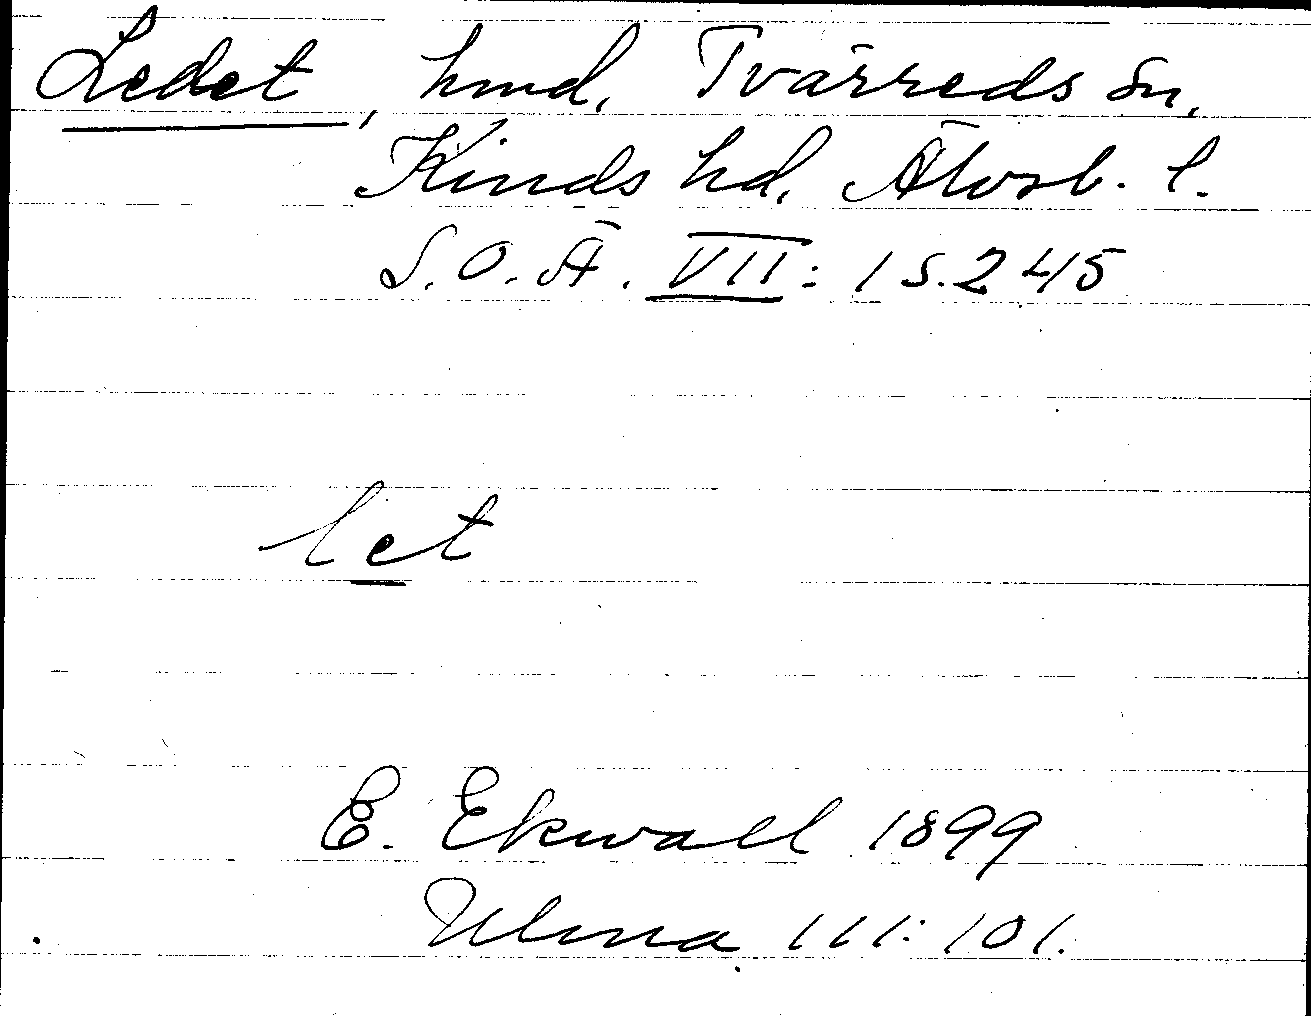 Ledet, hmd, Tvärreds sn,
Kinds hd, Älvsb. l.
S. O. Ä. VII: 1 s. 245
let
E. Ekwall 1899
Ulma 111: 101.